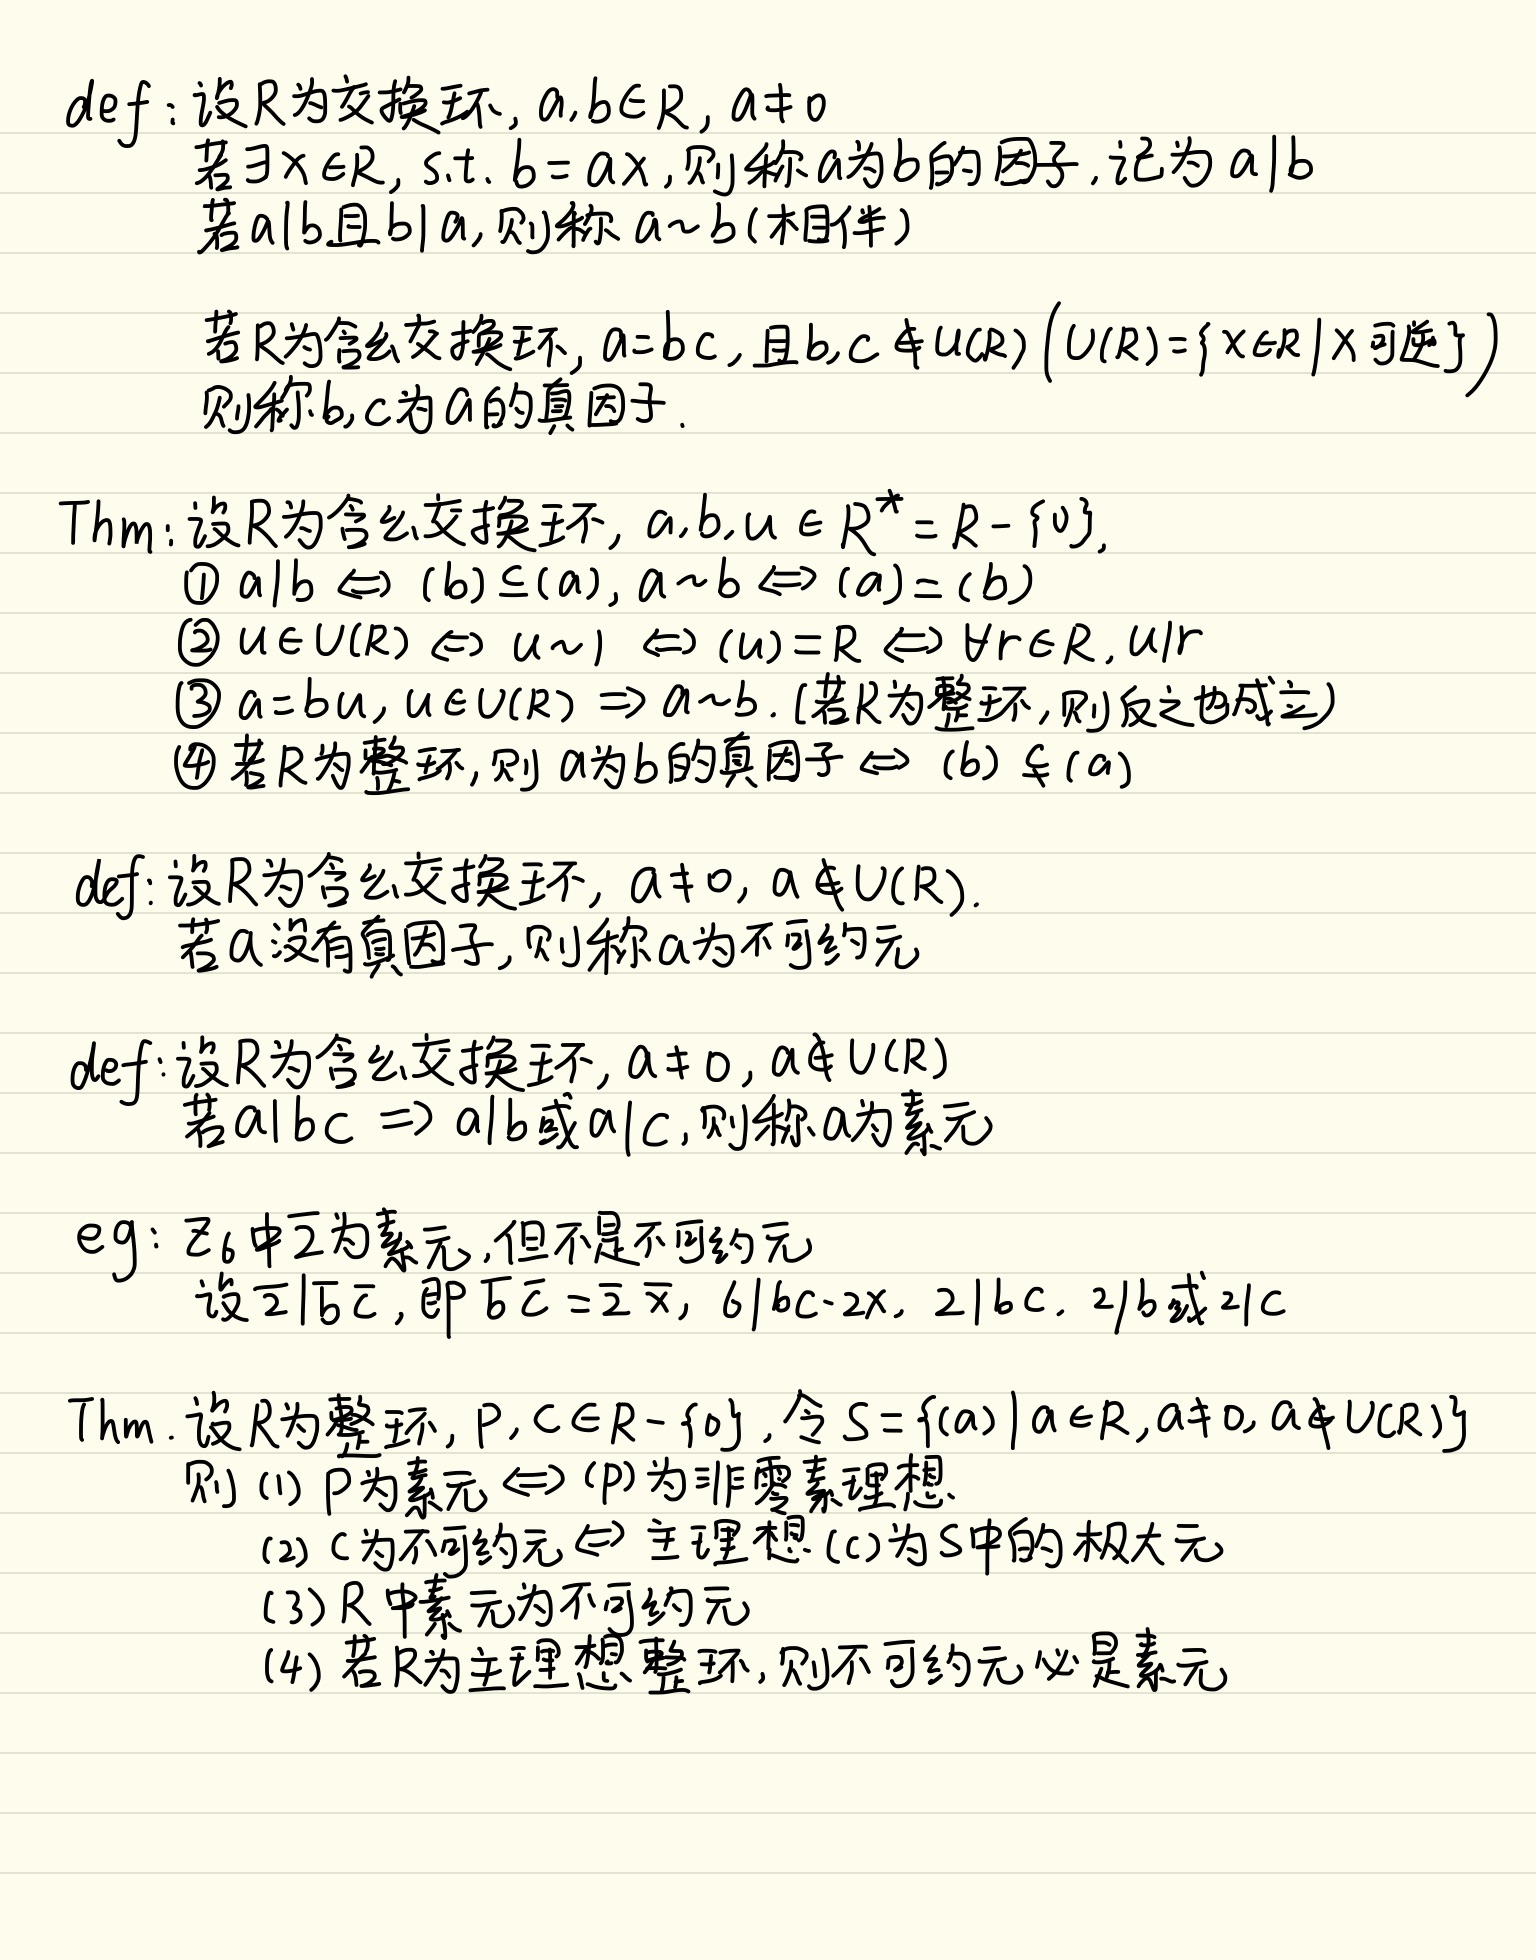 def: 设R为交换环, a,b∈R, a≠0
若∃x∈R, s.t. b=ax, 则称a为b的因子, 记为a|b
若a|b且b|a, 则称a~b(相伴)
若R为含幺交换环, a=bc, 且b,c∉U(R) (U(R)={x∈R|x可逆})
则称b,c为a的真因子.
Thm: 设R为含幺交换环, a,b,u∈R*=R-{0},
① a|b ⇔ (b)⊆(a), a~b ⇔ (a)=(b)
② u∈U(R) ⇔ u~1 ⇔ (u)=R ⇔ ∀r∈R, u|r
③ a=bu, u∈U(R) ⇒ a~b. (若R为整环, 则反之也成立)
④ 若R为整环, 则a为b的真因子 ⇔ (b)⊊(a)
def: 设R为含幺交换环, a≠0, a∉U(R).
若a没有真因子, 则称a为不可约元
def: 设R为含幺交换环, a≠0, a∉U(R)
若a|bc ⇒ a|b或a|c, 则称a为素元
eg: Z₆中2̅为素元, 但不是不可约元
设2̅|b̅c̅, 即b̅c̅=2̅x̅, 6|bc-2x, 2|bc, 2|b或2|c
Thm. 设R为整环, p,c∈R-{0}, 令S={(a)|a∈R, a≠0, a∉U(R)}
则 (1) p为素元⇔(p)为非零素理想
(2) c为不可约元⇔主理想(c)为S中的极大元
(3) R中素元为不可约元
(4) 若R为主理想整环, 则不可约元必是素元